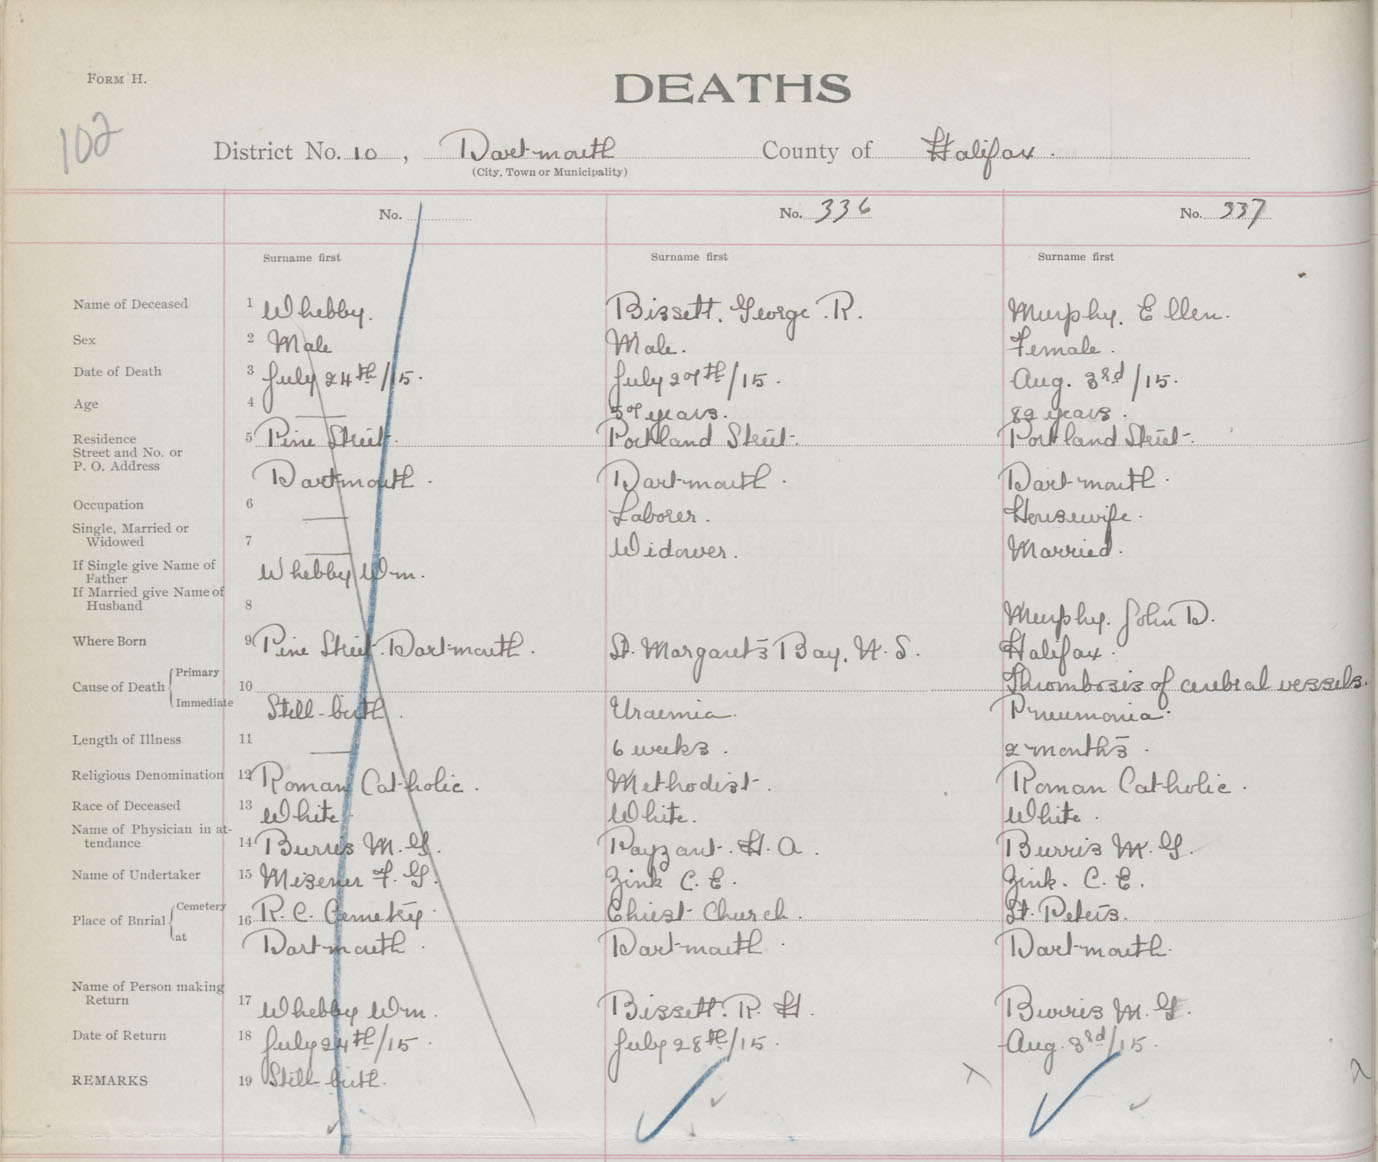 FORM H.
DEATHS
102
District No. 10, Dartmouth County of Halifax.
(City, Town or Municipality)
No. No. 336 No. 337
Surname first Surname first Surname first
Name of Deceased 1 Whebby. Bissett. George. R. Murphy. Ellen.
Sex 2 Male Male. Female.
Date of Death 3 July 24th/15. July 27th/15. Aug. 3rd/15.
Age 4 — 57 years. 82 years.
Residence 5 Pine Street. Portland Street. Portland Street.
Street and No. or
P. O. Address Dartmouth. Dartmouth. Dartmouth.
Occupation 6 — Laborer. Housewife.
Single, Married or
Widowed 7 — Widower. Married.
If Single give Name of
Father Whebby Wm.
If Married give Name of
Husband 8 Murphy. John D.
Where Born 9 Pine Street. Dartmouth. St. Margaret's Bay. N. S. Halifax.
Cause of Death { Primary 10 Thrombosis of cerebral vessels.
Immediate Still-birth. Uraemia. Pneumonia.
Length of Illness 11 — 6 weeks. 2 month's.
Religious Denomination 12 Roman Catholic. Methodist. Roman Catholic.
Race of Deceased 13 White White. White.
Name of Physician in at-
tendance 14 Burris M. G. Payzant. H. A. Burris M. G.
Name of Undertaker 15 Misener F. G. Zink C. E. Zink. C. E.
Place of Burial { Cemetery 16 R. C. Cemetery. Christ Church. St. Peter's.
at Dartmouth. Dartmouth. Dartmouth.
Name of Person making
Return 17 Whebby Wm. Bissett. R. H. Burris M. G.
Date of Return 18 July 24th/15. July 28th/15. Aug. 3rd/15.
REMARKS 19 Still-birth.